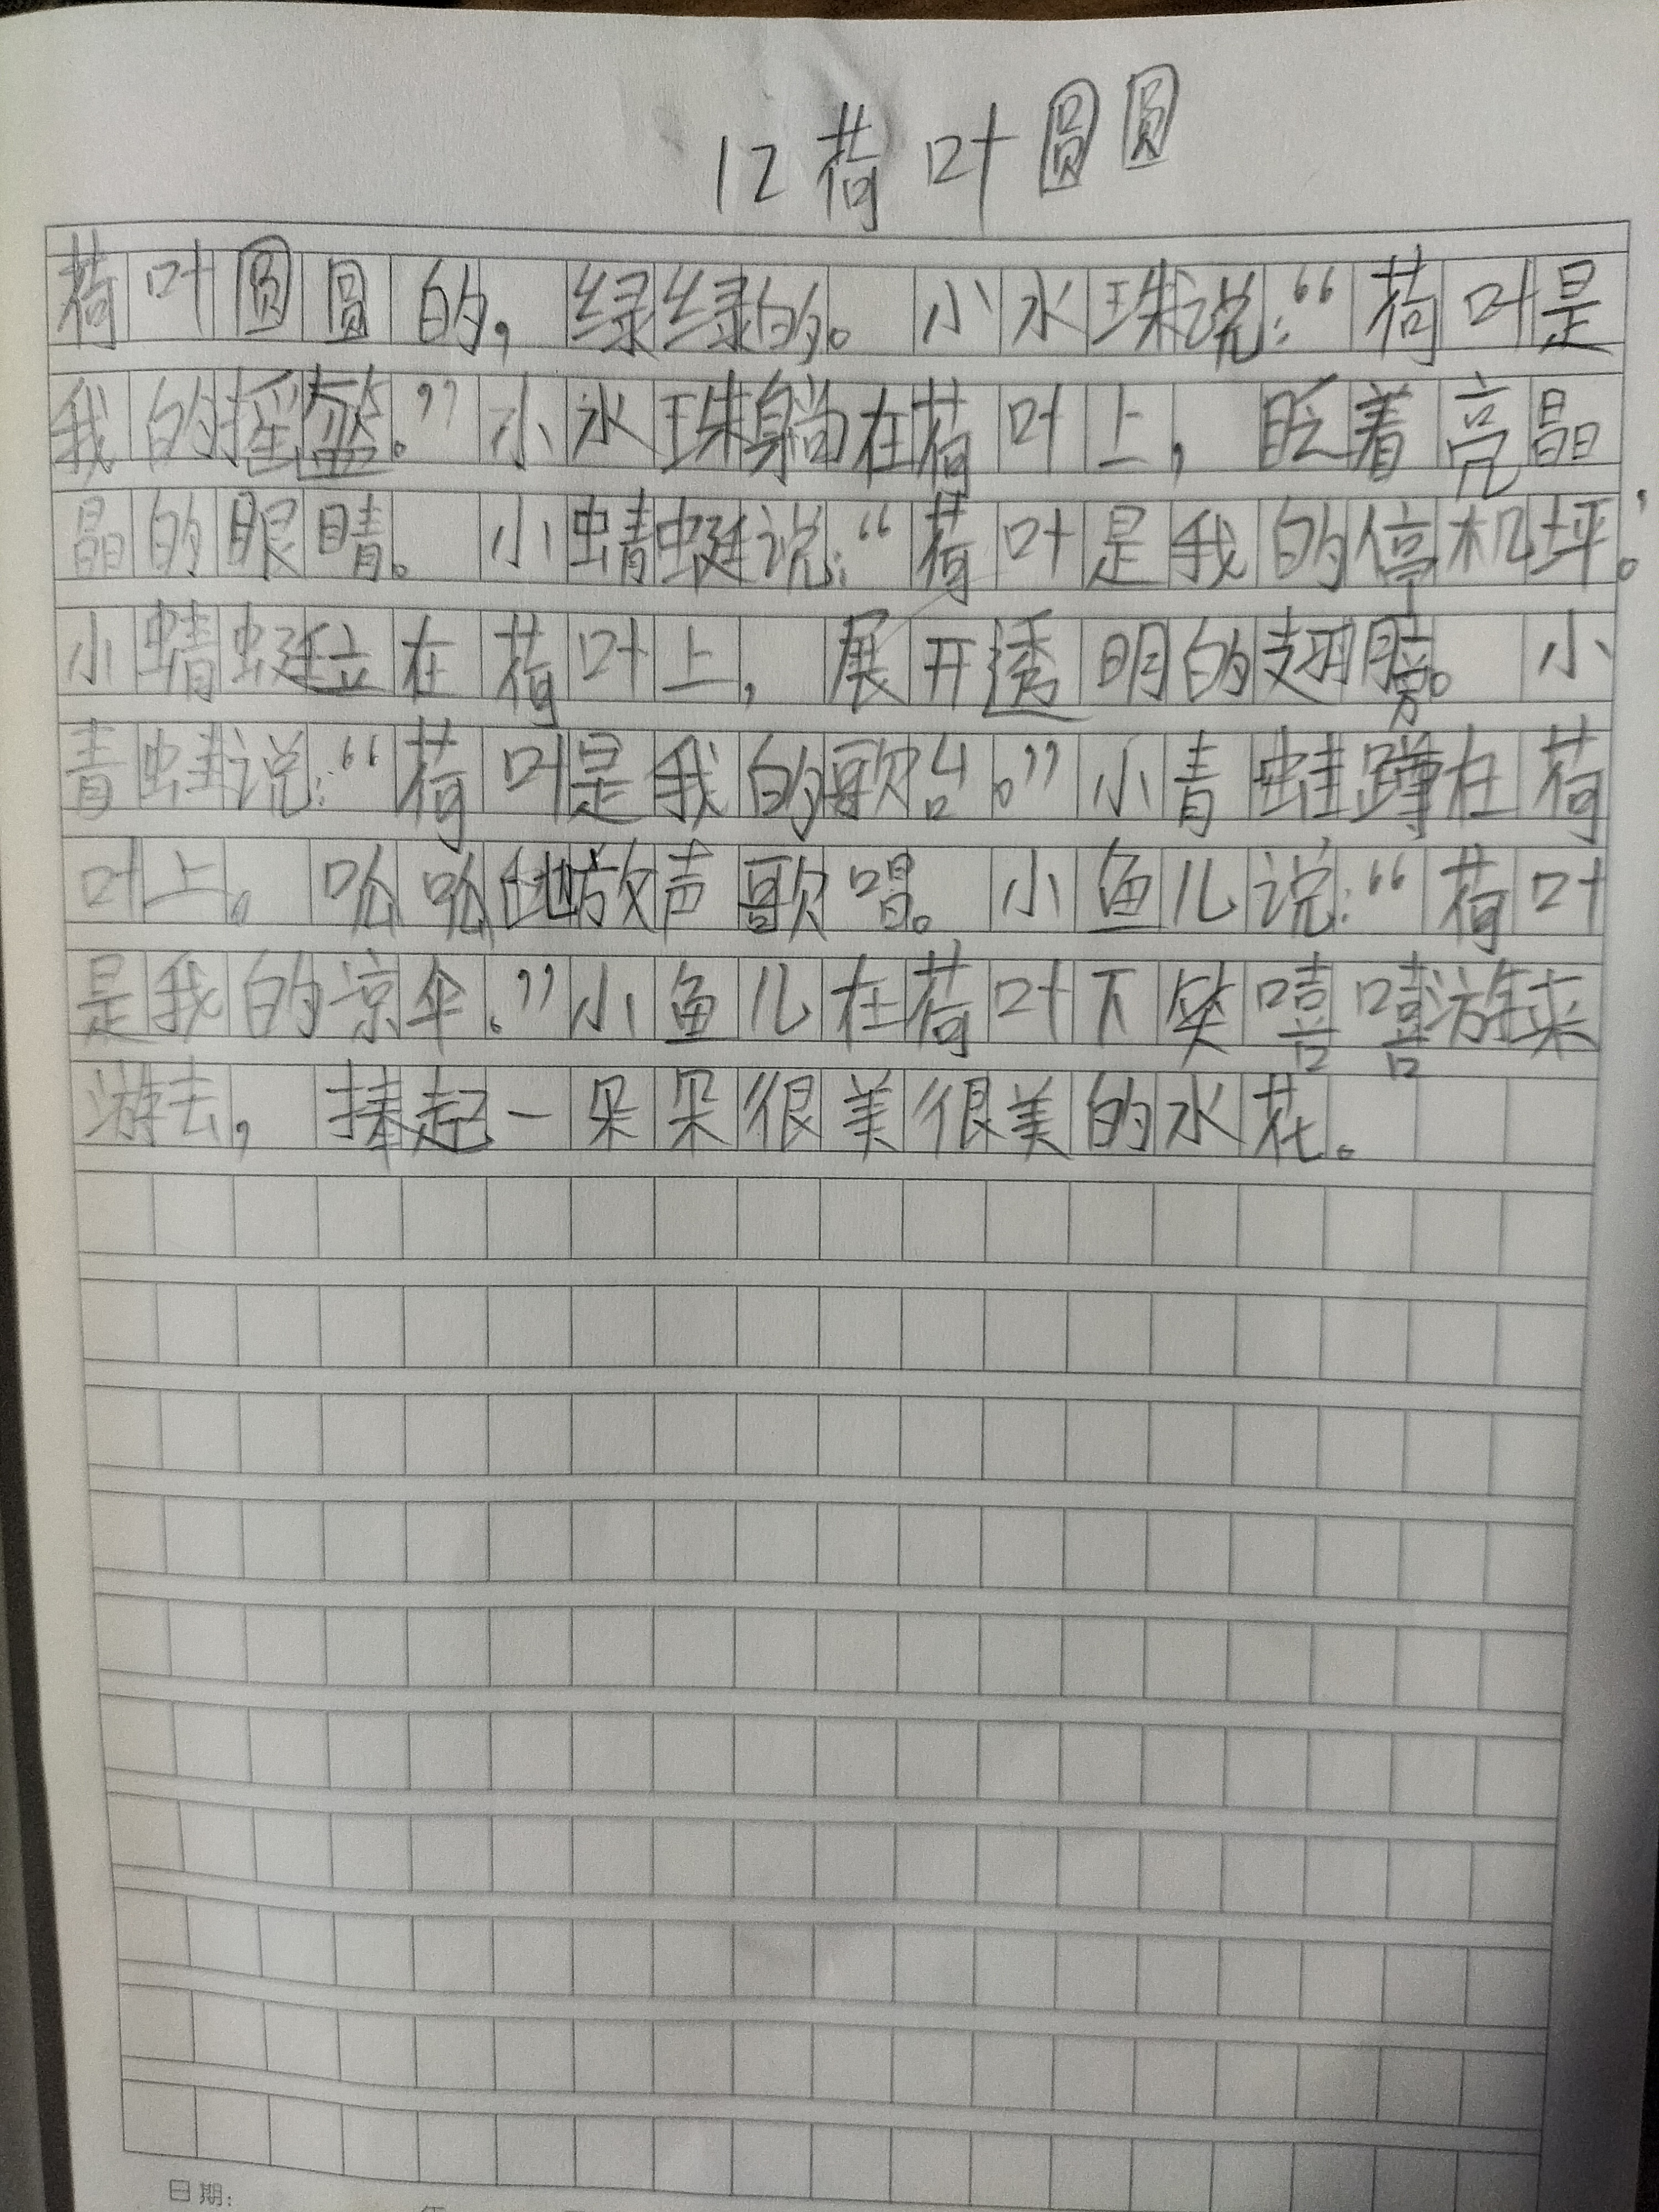 12荷叶圆圆
荷叶圆圆的，绿绿的。小水珠说：“荷叶是
我的摇篮。”小水珠躺在荷叶上，眨着亮晶
晶的眼睛。小蜻蜓说：“荷叶是我的停机坪。”
小蜻蜓立在荷叶上，展开透明的翅膀。小
青蛙说：“荷叶是我的歌台。”小青蛙蹲在荷
叶上。呱呱地放声歌唱。小鱼儿说：“荷叶
是我的凉伞。”小鱼儿在荷叶下笑嘻嘻游来
游去，捧起一朵朵很美很美的水花。
日期：